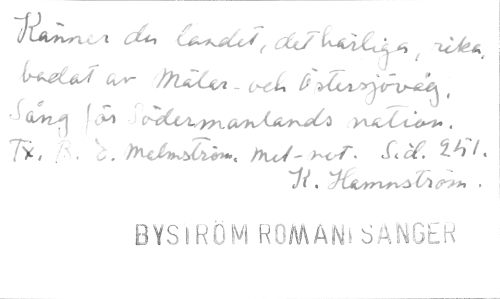 Känner du landet, det härliga, rika,
badat av Mälar- och Östersjövåg.
Sång för Södermanlands nation.
Tx. B. E. Malmström. Met-not. Sid. 251.
K. Hammström.
BYSTRÖM ROMANI SÅNGER